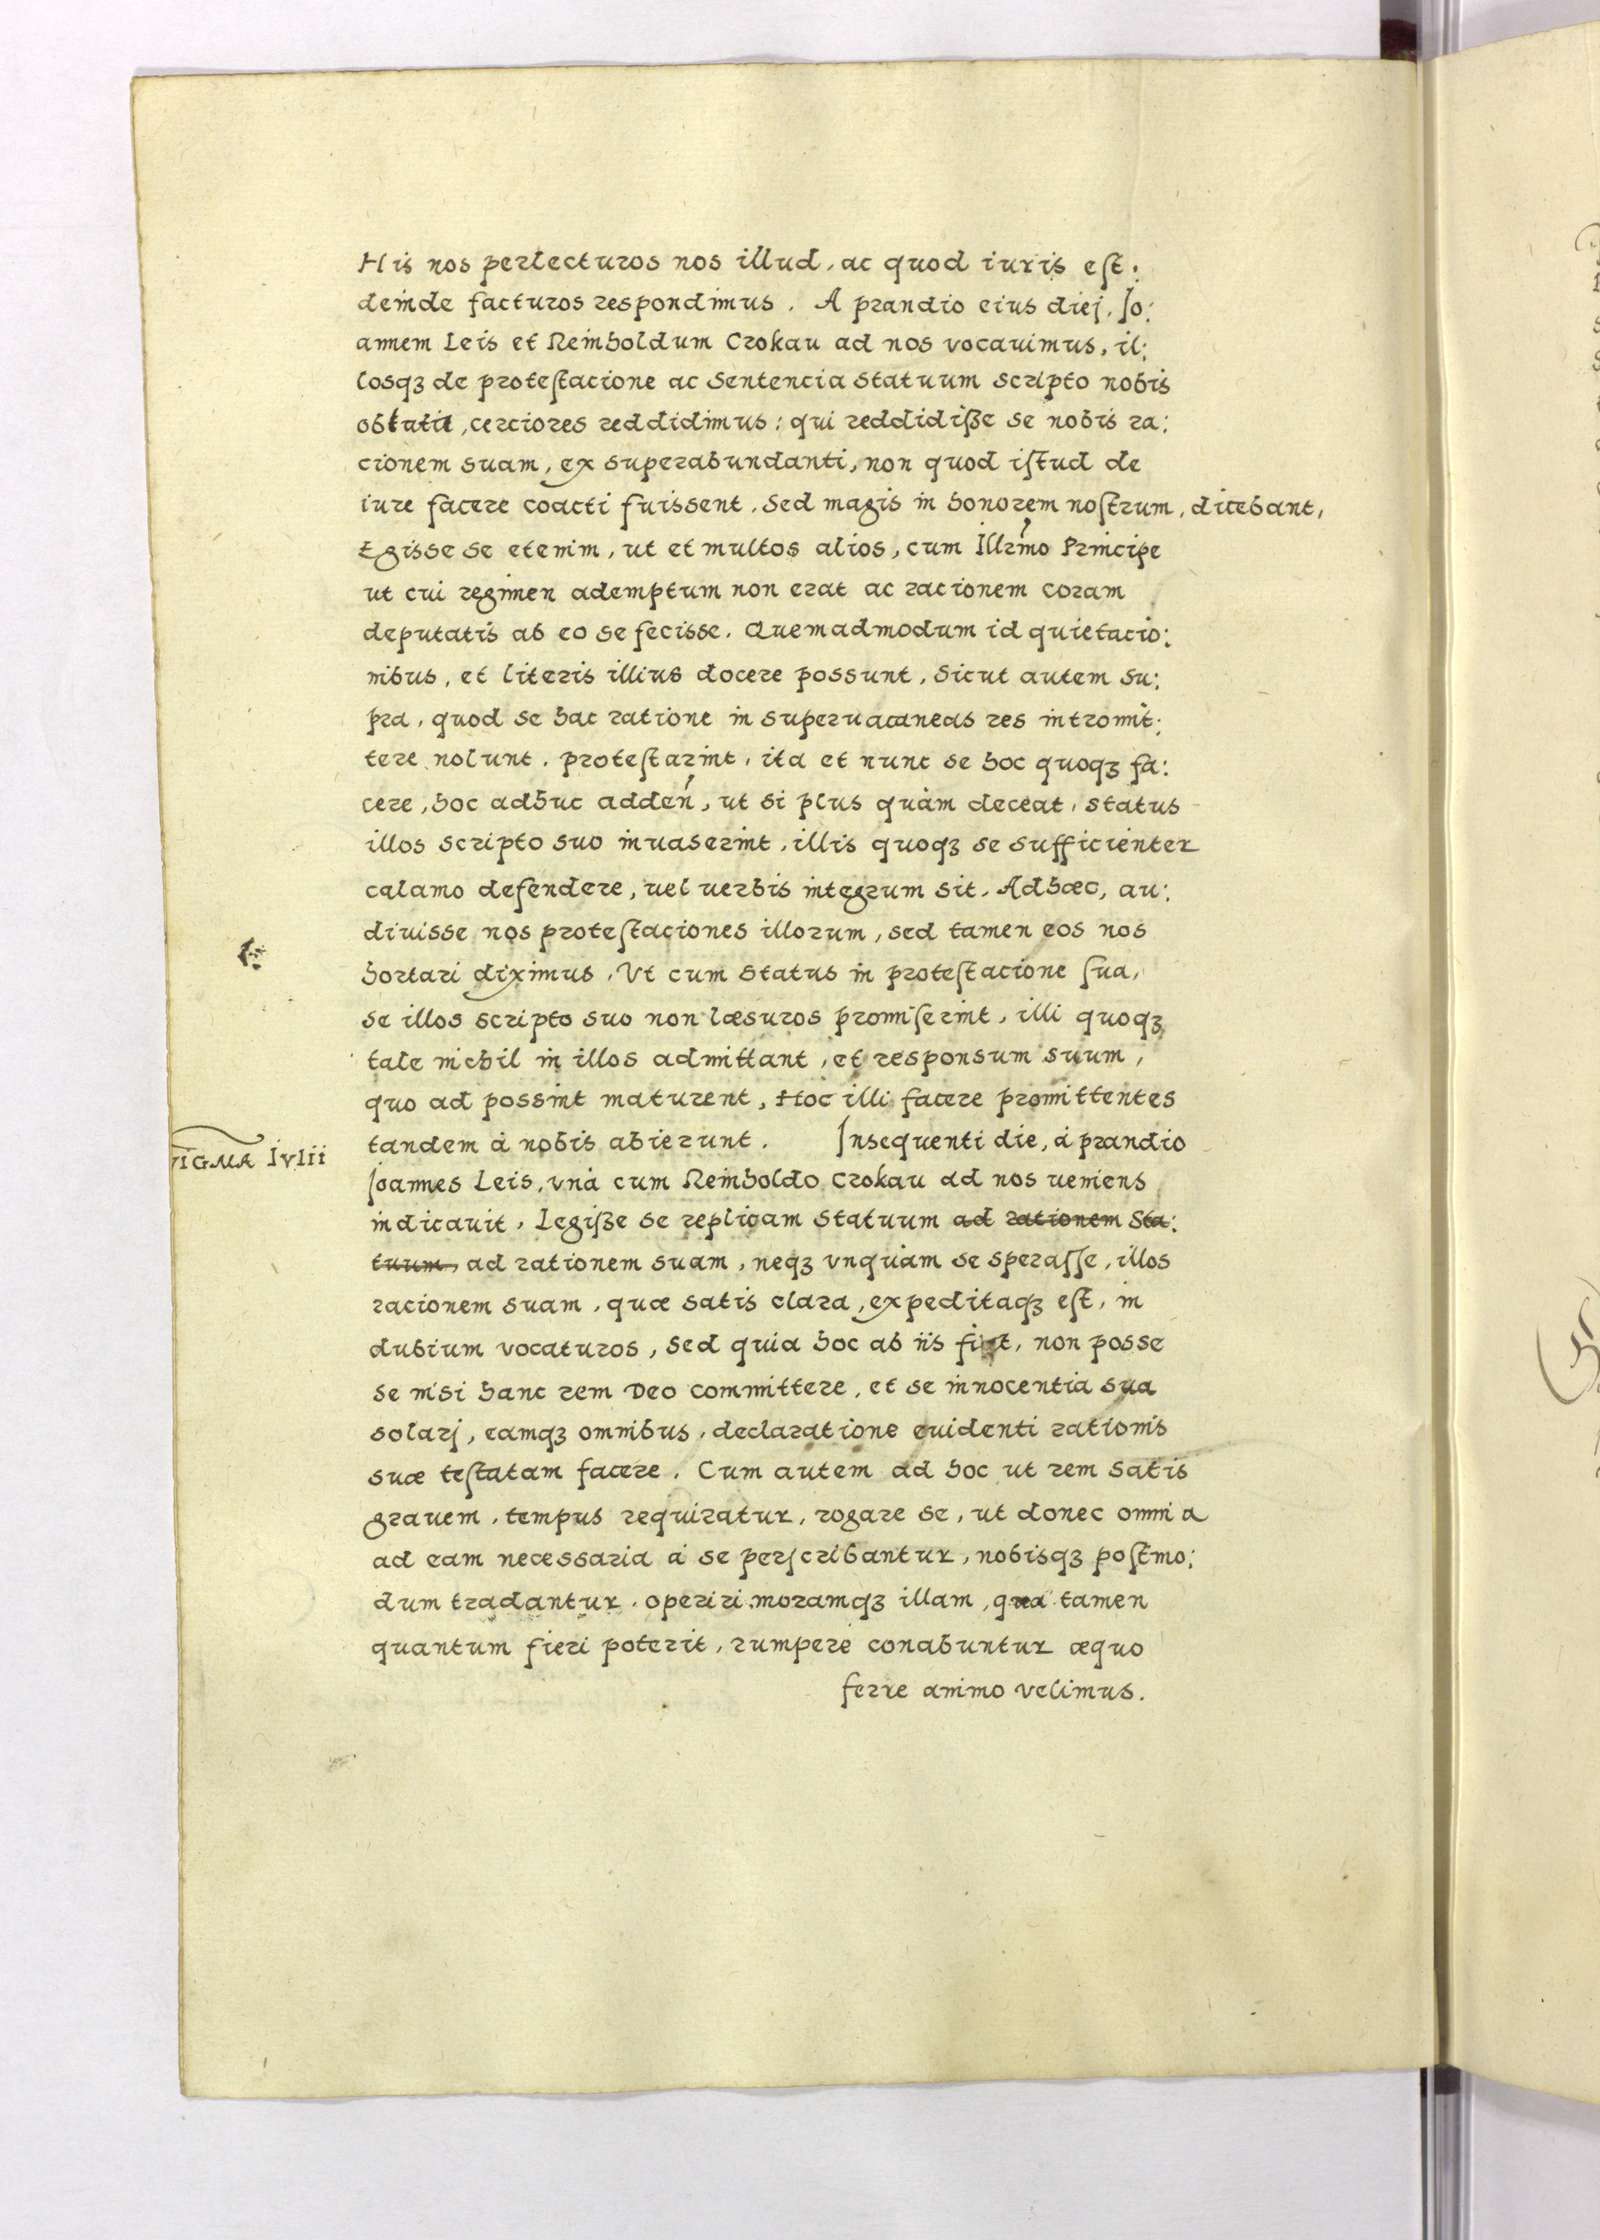 His nos perlecturos nos illud, ac quod iuris est.
deinde facturos respondimus. A prandio eius diej, Jo:
annem Leis et Reinholdum Crokau ad nos vocauimus, il:
losqꝫ de protestacione ac sentencia statuum scripto nobis
oblatie, cerciores reddidimus: qui reddidisse se nobis ra:
cionem suam, ex superabundanti, non quod istud de
iure facere coacti fuissent, sed magis in honorem nostrum, dicebant,
Egisse se etenim, ut et multos alios, cum Illrmo Principe
ut cui regimen ademptum non erat ac racionem coram
deputatis ab eo se fecisse. Quemadmodum id quietacio:
nibus, et literis illius docere possunt, sicut autem su:
pra, quod se hac ratione in superuacaneas res intromit:
tere nolunt, protestarint, ita et nunc se hoc quoqꝫ fa:
cere, hoc adhuc adden, ut si plus quàm deceat, status
illos scripto suo inuaserint, illis quoqꝫ se sufficienter
calamo defendere, uel uerbis integrum sit. Adhæc, au:
diuisse nos protestaciones illorum, sed tamen eos nos
hortari diximus, Vt cum status in protestacione sua,
se illos scripto suo non læsuros promiserint, illi quoqꝫ
tale nichil in illos admittant, et responsum suum,
quo ad possint maturent, Hoc illi facere promittentes
tandem à nobis abierunt. Insequenti die, à prandio
VIGMA Ivlii
Joannes Leis, vnà cum Reinholdo Crokau ad nos ueniens
indicauit, Legisse se replicam statuum ad rationem sta:
tuum, ad rationem suam, neqꝫ vnquàm se sperasse, illos
racionem suam, quæ satis clara, expeditaqꝫ est, in
dubium vocaturos, sed quia hoc ab iis fiat, non posse
se nisi hanc rem Deo committere, et se innocentia sua
solarj, eamqꝫ omnibus, declaratione euidenti rationis
suæ testatam facere. Cum autem ad hoc ut rem satis
grauem, tempus requiratur, rogare se, ut donec omnia
ad eam necessaria à se perscribantur, nobisqꝫ postmo:
dum tradantur, operiri moramqꝫ illam, qua tamen
quantum fieri poterit, rumpere conabuntur æquo
ferre animo velimus.